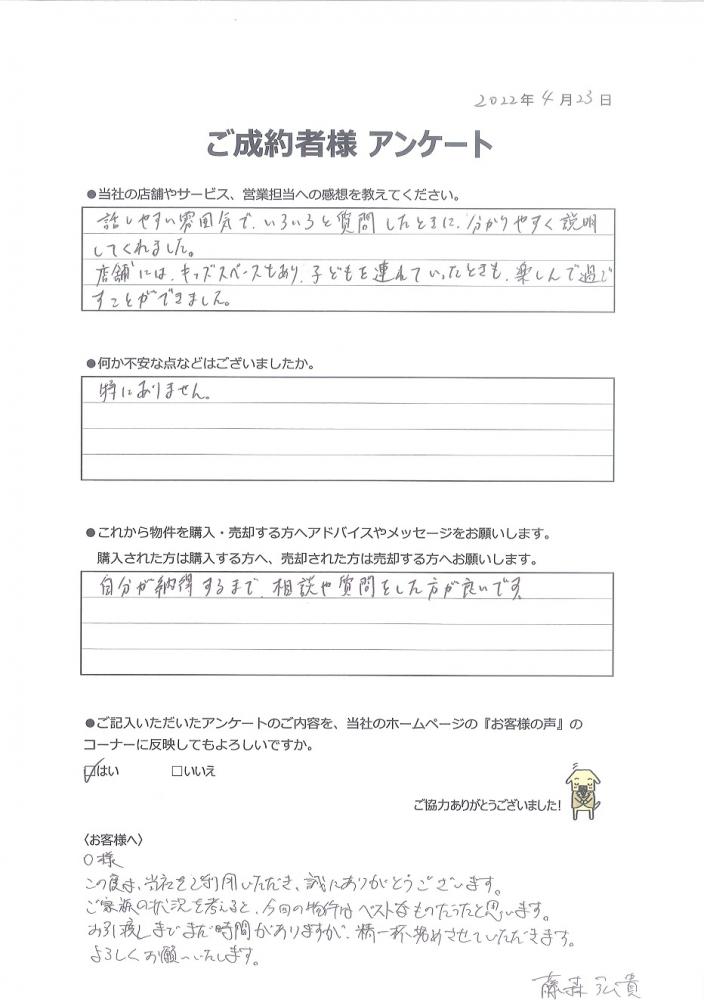 2022年 4月23日
ご成約者様 アンケート
●当社の店舗やサービス、営業担当への感想を教えてください。
話しやすい雰囲気で、いろいろと質問したときに、分かりやすく説明
してくれました。
店舗には、キッズスペースもあり、子どもを連れていったときも、楽しんで過ご
すことができました。
●何か不安な点などはございましたか。
特にありません。
●これから物件を購入・売却する方へアドバイスやメッセージをお願いします。
購入された方は購入する方へ、売却された方は売却する方へお願いします。
自分が納得するまで、相談や質問をした方が良いです。
●ご記入いただいたアンケートのご内容を、当社のホームページの『お客様の声』の
コーナーに反映してもよろしいですか。
☑はい □いいえ
ご協力ありがとうございました!
〈お客様へ〉
O様
この度は、当社をご利用いただき、誠にありがとうございます。
ご家族の状況を考えると、今回の物件はベストなものだったと思います。
お引渡しまでまだ時間がありますが、精一杯努めさせていただきます。
よろしくお願いいたします。
藤森 弘貴